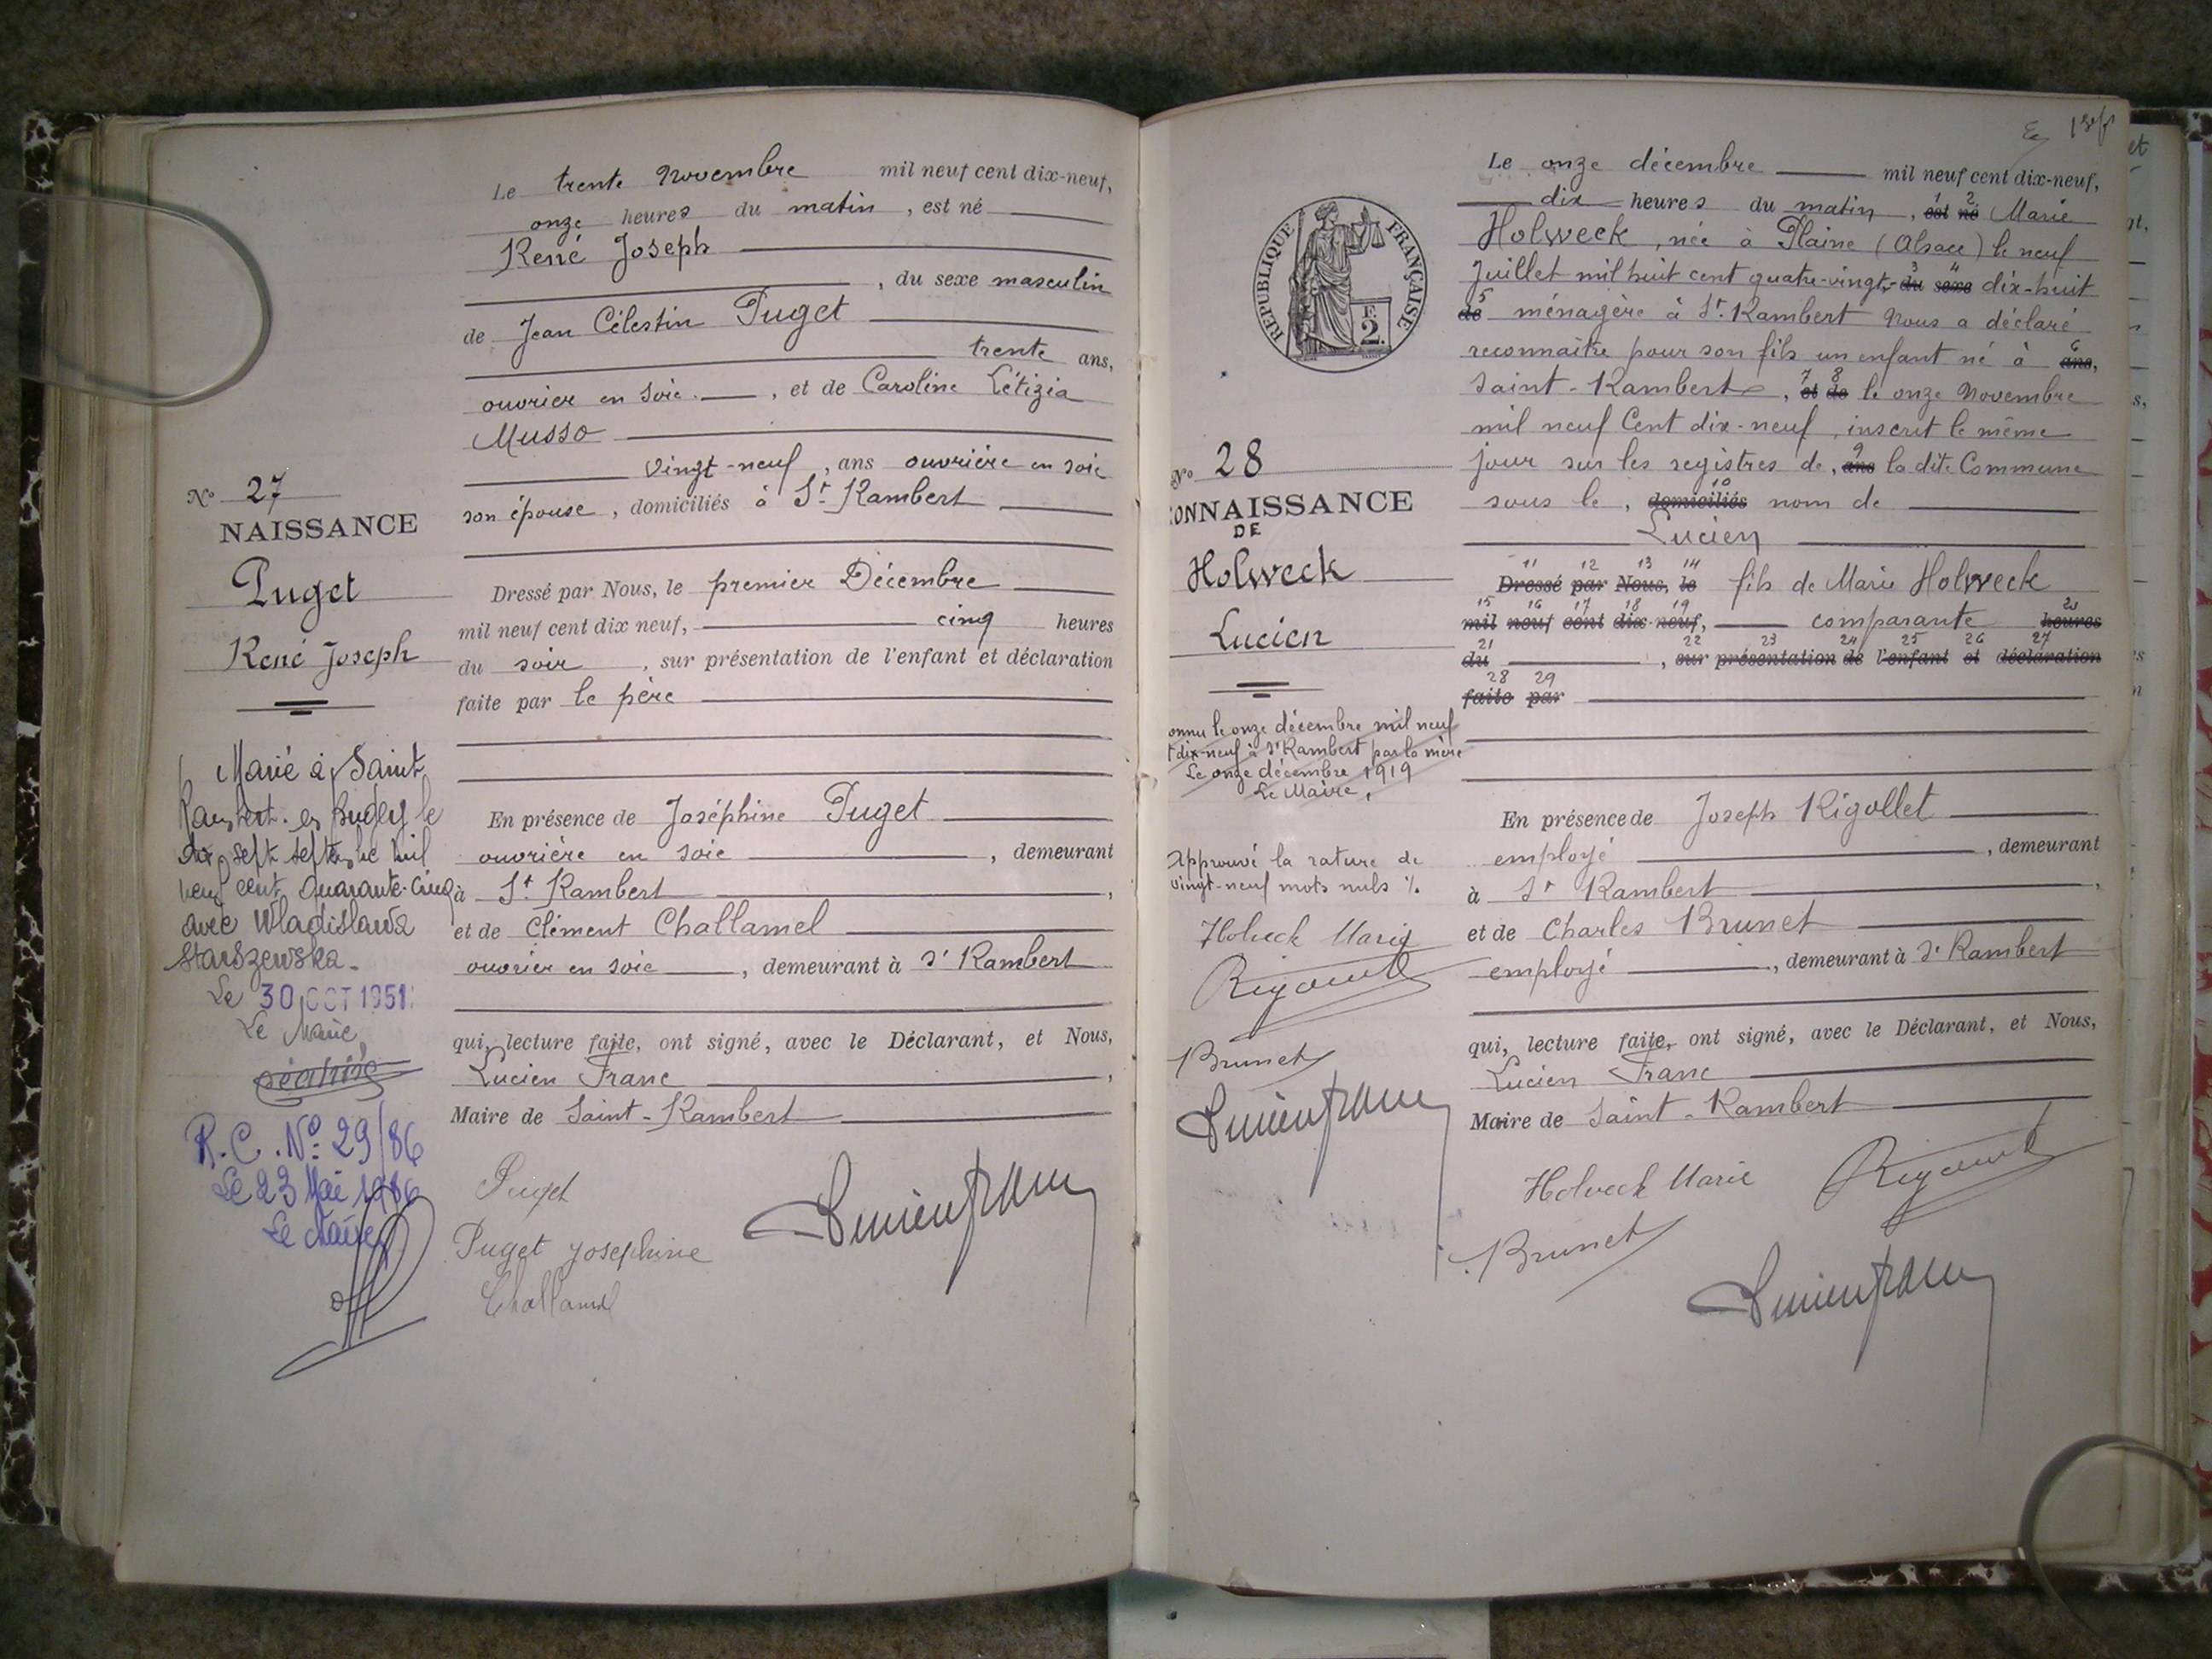 Le trente Novembre mil neuf cent dix-neuf,
onze heures du matin, est né
René Joseph
, du sexe masculin
de Jean Célestin Puget
trente ans,
ouvrier en soie, et de Caroline Létizia
Musso
vingt-neuf, ans ouvrière en soie
son épouse, domiciliés à St Rambert
Dressé par Nous, le premier Décembre
mil neuf cent dix neuf, cinq heures
du soir, sur présentation de l'enfant et déclaration
faite par le père
En présence de Joséphine Puget
ouvrière en soie, demeurant
à St Rambert,
et de Clément Challamel
ouvrier en soie, demeurant à St Rambert
qui, lecture faite, ont signé, avec le Déclarant, et Nous,
Lucien Franc,
Maire de Saint-Rambert
Puget
Puget Josephine
Challamel
Lucien Franc
No 27
NAISSANCE
Puget
René Joseph
Marié à Saint
Rambert en Bugey le
dix sept septembre mil
neuf cent quarante-cinq
avec Wladislawa
Starszewska.
Le 30 OCT 1951
Le Maire,
R.C. No 29/86
Le 23 Mai 1986
Le Maire,
REPUBLIQUE FRANÇAISE
F.
2.
No 28
ONNAISSANCE
DE
Holweck
Lucien
onnu le onze décembre mil neuf
t dix-neuf à St Rambert par la mère
Le onze décembre 1919
Le Maire,
Approuvé la rature de
vingt-neuf mots nuls %
Holveck Marie
Brunet
Lucien Franc
Le onze décembre mil neuf cent dix-neuf,
dix heures du matin, 1 est 2 né Marie
Holweck, née à Plaine (Alsace) le neuf
Juillet mil huit cent quatre-vingt- 3 du 4 sexe dix-huit
5 de ménagère à St Rambert Nous a déclaré
reconnaître pour son fils un enfant né à 6 ans,
Saint-Rambert, 7 et 8 de le onze Novembre
mil neuf Cent dix-neuf, inscrit le même
jour sur les registres de, 9 ans la dite Commune
sous le, 10 domiciliés nom de
Lucien
11 12 13 14
Dressé par Nous, le fils de Marie Holweck
15 16 17 18 19 20
mil neuf cent dix-neuf, comparante heures
21 22 23 24 25 26 27
du, sur présentation de l'enfant et déclaration
28 29
faite par
En présence de Joseph Rigollet
employé, demeurant
à St Rambert,
et de Charles Brunet
employé, demeurant à St Rambert
qui, lecture faite, ont signé, avec le Déclarant, et Nous,
Lucien Franc
Maire de Saint-Rambert
Holveck Marie
Brunet
Lucien Franc